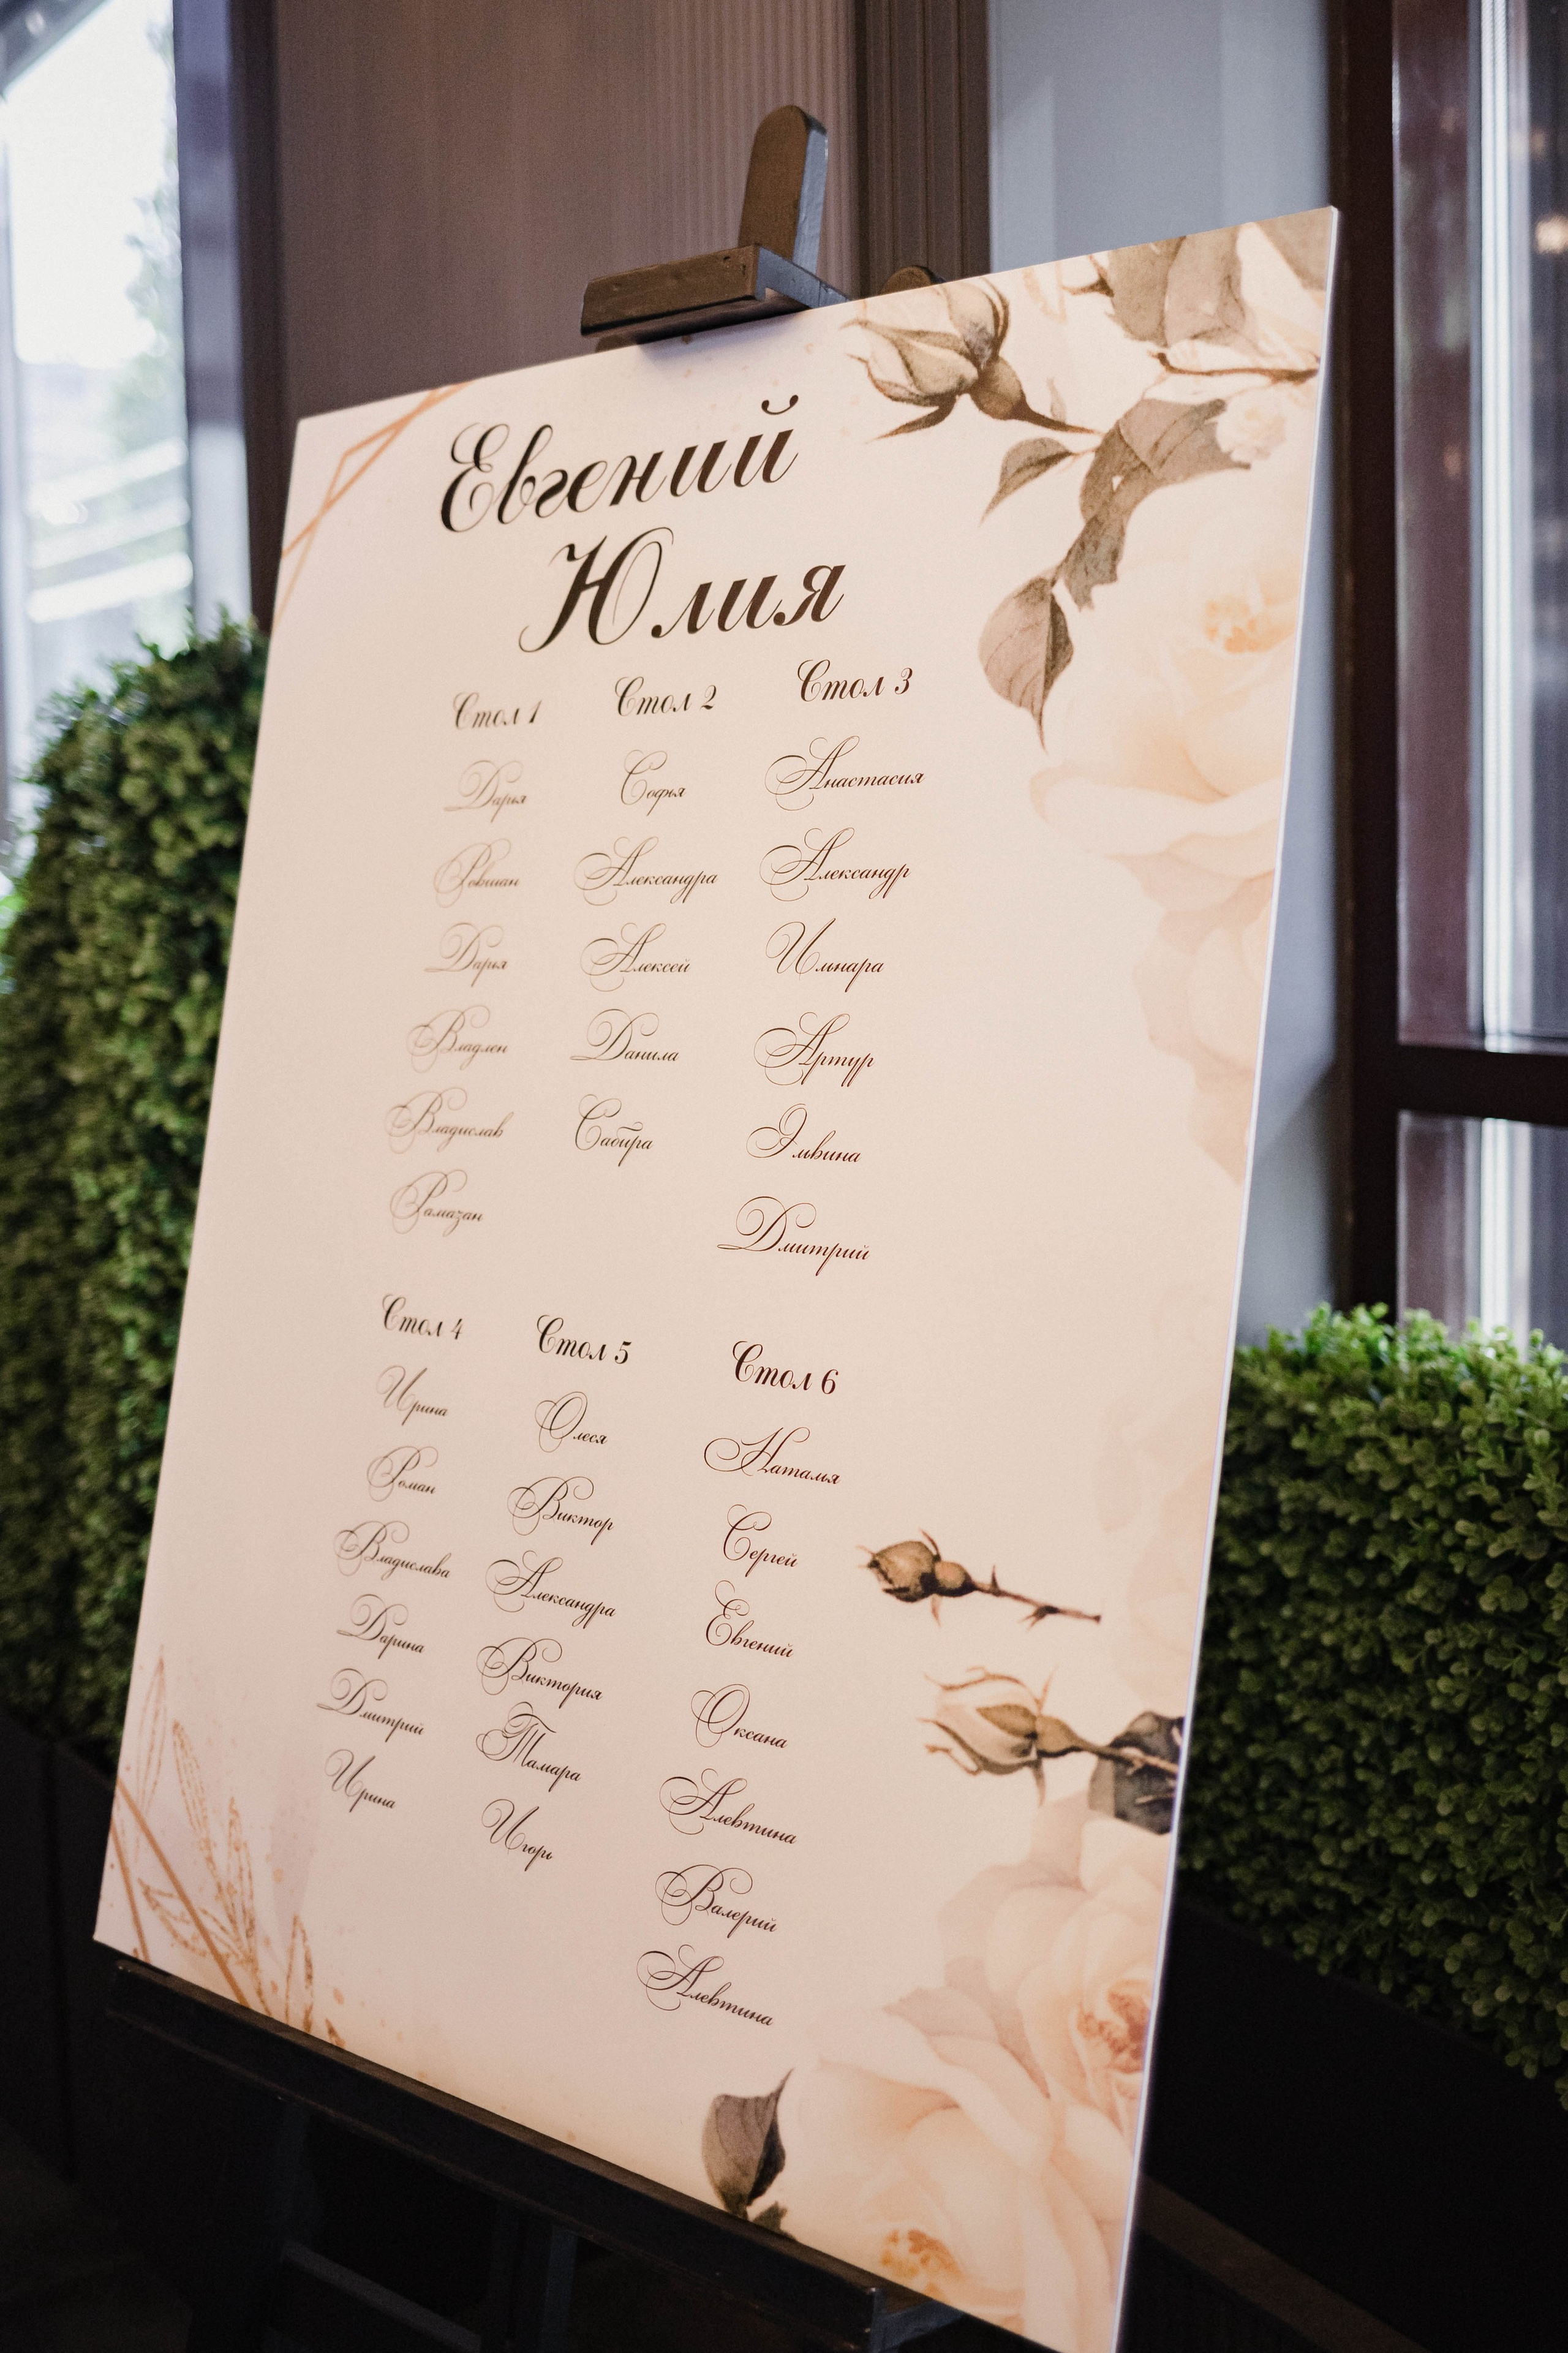 Евгений
Юлия
Стол 1
Дарья
Ровшан
Дарья
Владлен
Владислав
Рамазан
Стол 2
Софья
Александра
Алексей
Данила
Сабира
Стол 3
Анастасия
Александр
Ильнара
Артур
Эльвина
Дмитрий
Стол 4
Ирина
Роман
Владислава
Дарина
Дмитрий
Ирина
Стол 5
Олеся
Виктор
Александра
Виктория
Тамара
Игорь
Стол 6
Наталья
Сергей
Евгений
Оксана
Алевтина
Валерий
Алевтина